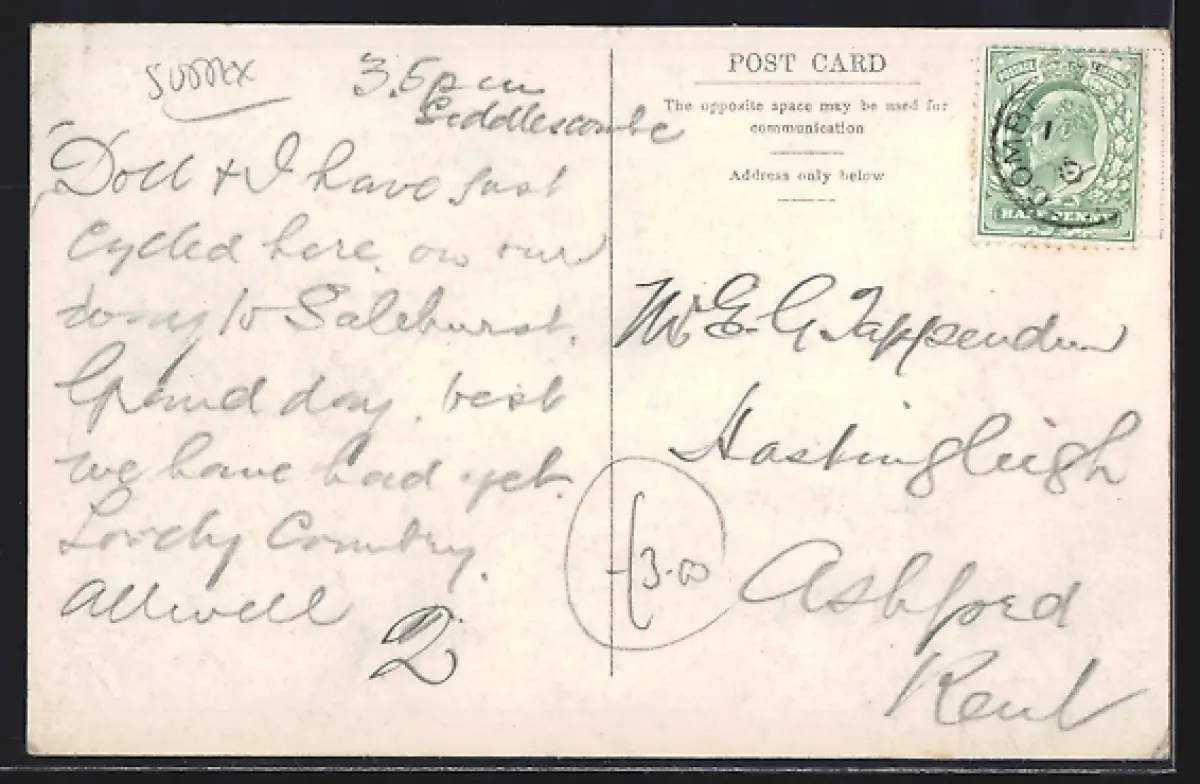 SUSSEX
3.5 pm
Seddlescombe
Doll & I have just
cycled here. on our
way to Salehurst.
Grand day. best
we have had yet.
Lovely Country.
All well
2
POST CARD
The opposite space may be used for
communication
Address only below
HALFPENNY
OMBE
Mr E. G. Tappenden
Hastingleigh
Ashford
Kent
3.00